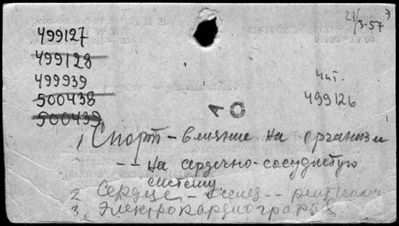 21/3-57
499127
499128
499939
500438
500439
чит.
499126
10
1, Спорт - влияние на организм
-- на сердечно-сосудистую
систему
2 Сердце -
3. Электрокардиография